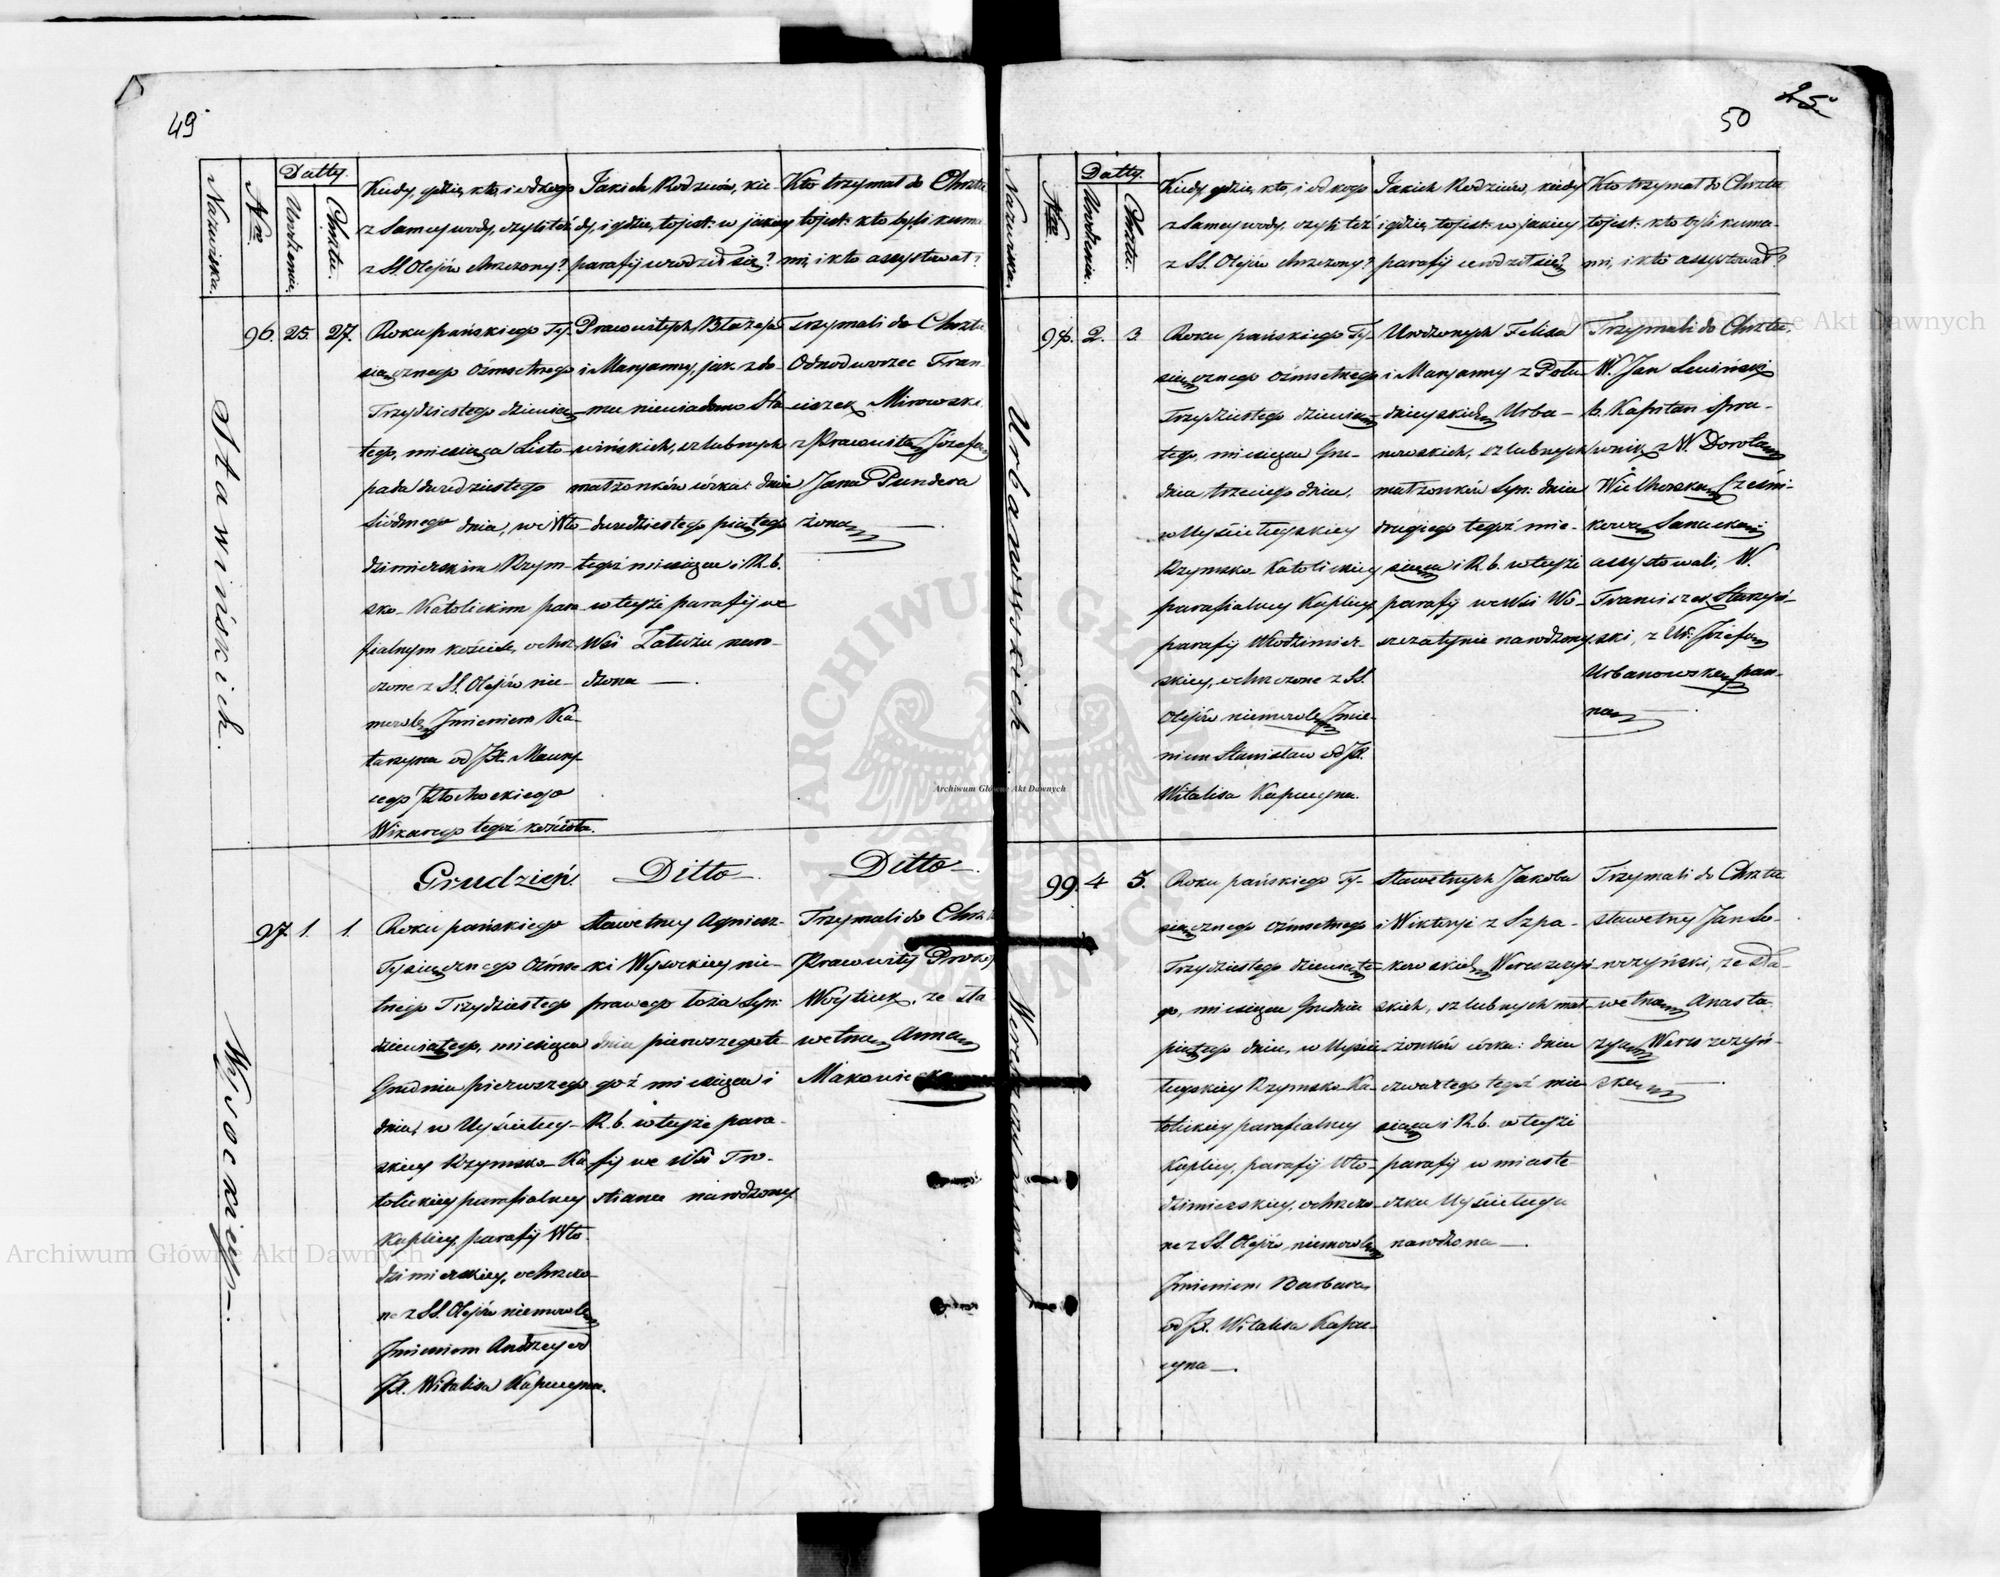 49
Datty.
Nazwiska.
Nro
Urodzenia.
Chrztu.
Kiedy, gdzie, kto, i od kogo
z Samey wody, czyli też
z SS. Olejów chrzczony?
Jakich Rodziców, kie-
dy, i gdzie, to jest: w jakiey
parafij urodził się?
Kto trzymał do Chrztu
to jest: kto byli kuma
mi, i kto assystował?
Stawińskich.
96. 25. 27.
Roku pańskiego Ty-
siącznego Ośmsetnego
Trzydziestego dziewią-
tego, miesiąca Listo-
pada dwudziestego
siódmego dnia, we Wło
dzimierskim Rzym-
sko-Katolickim para
fialnym kościele, ochrz
czone z SS. Olejów nie-
mowlę Imieniem Ka-
tarzyna od JX. Maury-
cego
Wikarego tegoż kościoła.
Pracowitych Błażeja
i Maryanny, jak z do-
mu niewiadomo Sta-
wińskich, szlubnych
małżonków córka: dnia
dwudziestego piątego
tegoż miesiąca i R. b.
w teyże parafij we
Wsi naro-
dzona —.
Trzymali do Chrztu
Odnodworzec Fran-
ciszek Mirowski
z Pracowitą Józefą
Jana Pundera
żoną —.
Grudzień.
Ditto —.
Ditto —.
Wysockiey —.
97. 1. 1.
Roku pańskiego
Tysiącznego Ośmse
tnego Trzydziestego
dziewiątego, miesiąca
Grudnia pierwszego
dnia, w Uściłuy-
skiey Rzymsko-Ka
tolickiey parafialney
Kaplicy, parafij Wło-
dzimierskiey, ochrzczo-
ne z SS. Olejów niemowlę
Imieniem Andrzey od
JX. Witalisa Kapucyna.
Sławetney Agniesz-
ki Wysockiey nie-
prawego łoża Syn:
dnia pierwszego te-
goż miesiąca i
R. b. w teyże para-
fij we Wsi
narodzony
Trzymali do Chrztu
Pracowity
Wóytiuk, ze Sła
wetną Anną
50
25
Datty.
Nazwiska.
Nro
Urodzenia.
Chrztu.
Kiedy, gdzie, kto, i od kogo
z Samey wody, czyli też
z SS. Olejów chrzczony?
Jakich Rodziców, kiedy
i gdzie, to jest: w jakiey
parafij urodził się?
Kto trzymał do Chrztu
to jest: kto byli kuma-
mi, i kto assystował?
Urbanowskich —.
98. 2. 3.
Roku pańskiego Ty-
siącznego Ośmsetnego
Trzydziestego dziewią-
tego, miesiąca Gru-
dnia trzeciego dnia,
w Uściłuyskiey
Rzymsko-Katolickiey
parafialney Kaplicy
parafij Włodzimier-
skiey, ochrzczone z SS.
Olejów niemowlę Imie-
niem Stanisław od JX.
Witalisa Kapucyna.
Urodzonych Felixa
i Maryanny z Polu-
Urba-
nowskich, szlubnych
małżonków Syn: dnia
drugiego tegoż mie-
siąca i R. b. w teyże
parafij we Wsi Wo-
szczatynie narodzony.
Trzymali do Chrztu,
W. Jan Lewiński
b. Kapitan Spra-
wnik, z W. Dorotą
Wielhorską Cześni-
kową Sanocką;
assystowali, W.
Franciszek Starzyń-
ski, z Ur: Józefą
Urbanowską pan-
ną —.
99. 4 5.
Roku pańskiego Ty-
siącznego Ośmsetnego
Trzydziestego dziewiąte-
go, miesiąca Grudnia
piątego dnia, w Uści-
łuyskiey Rzymsko-Ka
tolickiey parafialney
Kaplicy, parafij Wło-
dzimierskiey, ochrzczo-
ne z SS. Olejów, niemowlę
Imieniem Barbara
od JX. Witalisa Kapu-
cyna —.
Sławetnych Jakóba
i Wiktoryi z Szpa-
kowskich Wereszczyń-
skich, szlubnych mał-
żonków córka: dnia
czwartego tegoż mie-
siąca i R. b. w teyże
parafij w miaste-
czku Uściługu
narodzona —.
Trzymali do Chrztu
Sławetny Jan So-
ze Sła-
wetną Anasta-
zyą Wereszczyń-
ską —.
Archiwum Główne Akt Dawnych
Archiwum Główne Akt Dawnych
Archiwum Główne Akt Dawnych
ARCHIWUM GŁÓWNE